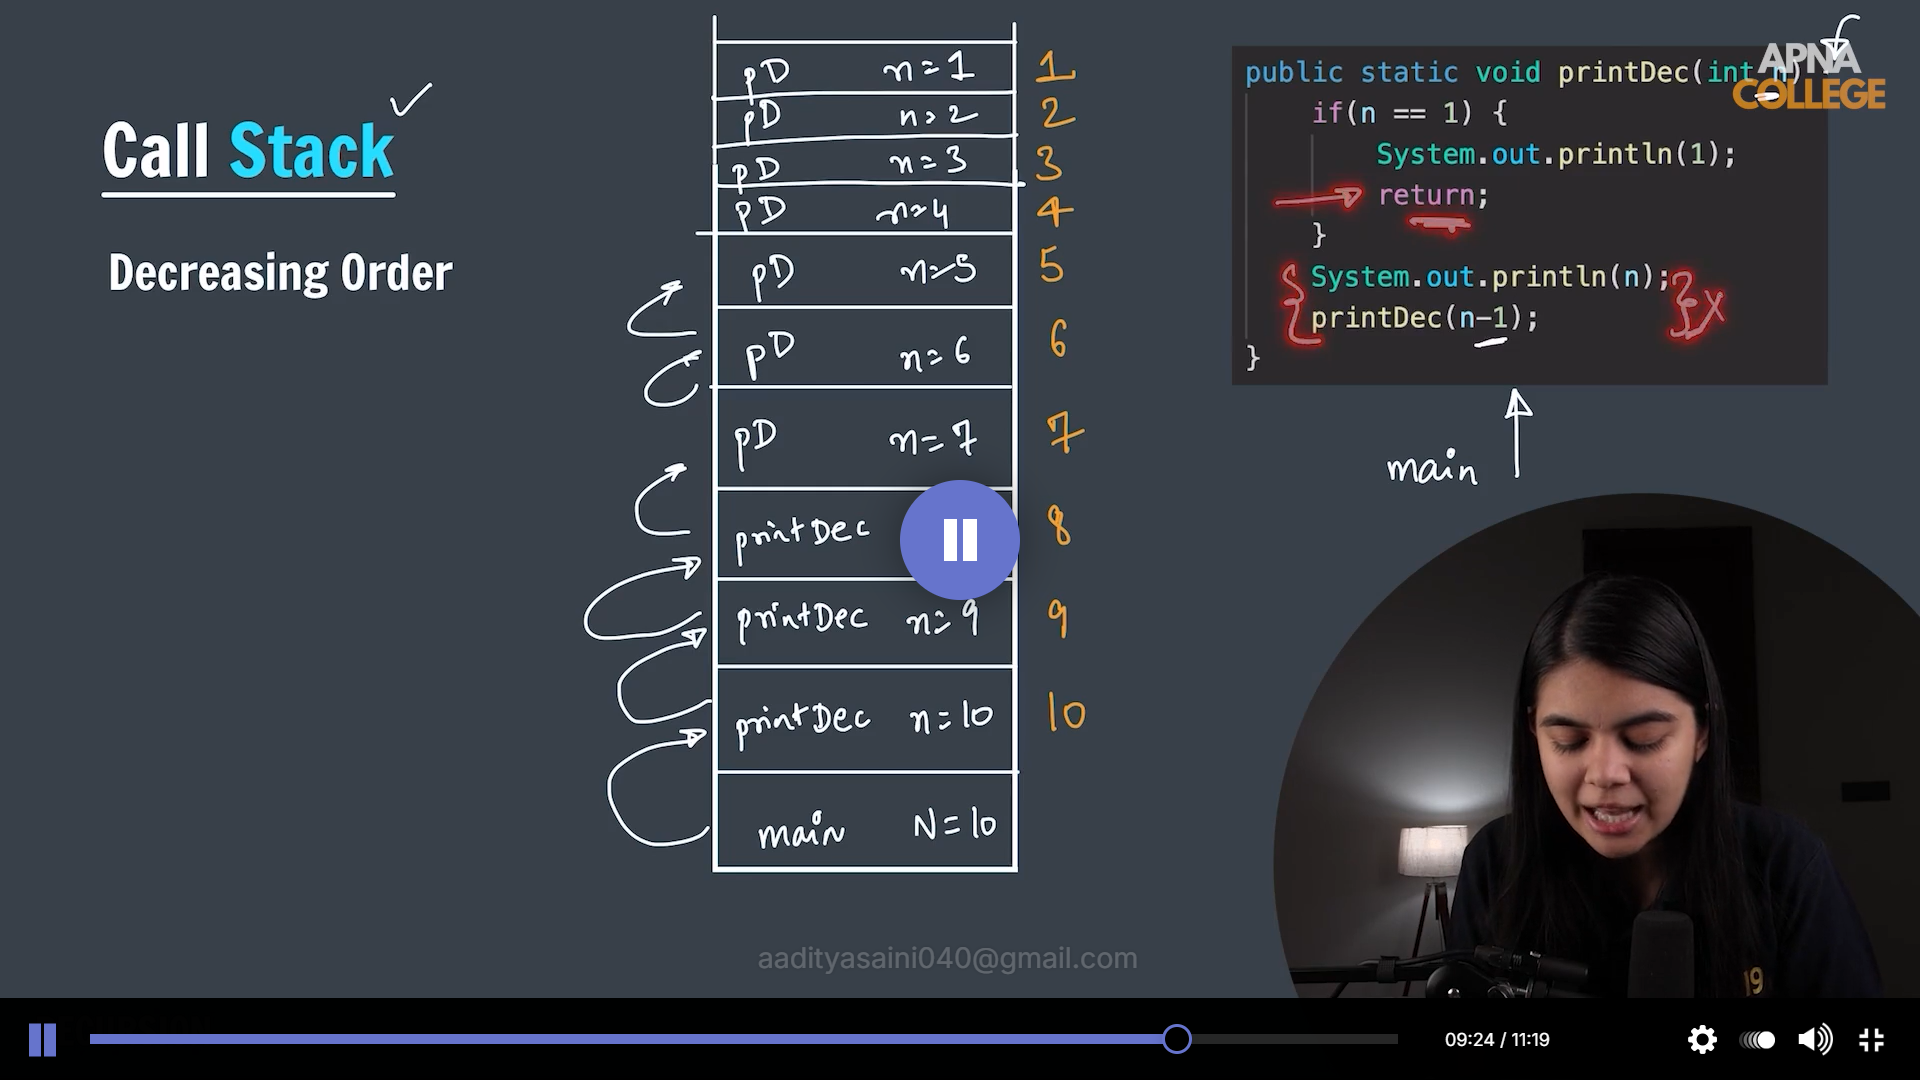 Call Stack
Decreasing Order
pD n=1 1
pD n=2 2
pD n=3 3
pD n=4 4
pD n=5 5
pD n=6 6
pD n=7 7
printDec 8
printDec n=9 9
printDec n=10 10
main N=10
APNA
COLLEGE
public static void printDec(int n) {
if(n == 1) {
System.out.println(1);
return;
}
System.out.println(n);
printDec(n-1);
}
main
19
aadityasaini040@gmail.com
09:24 / 11:19